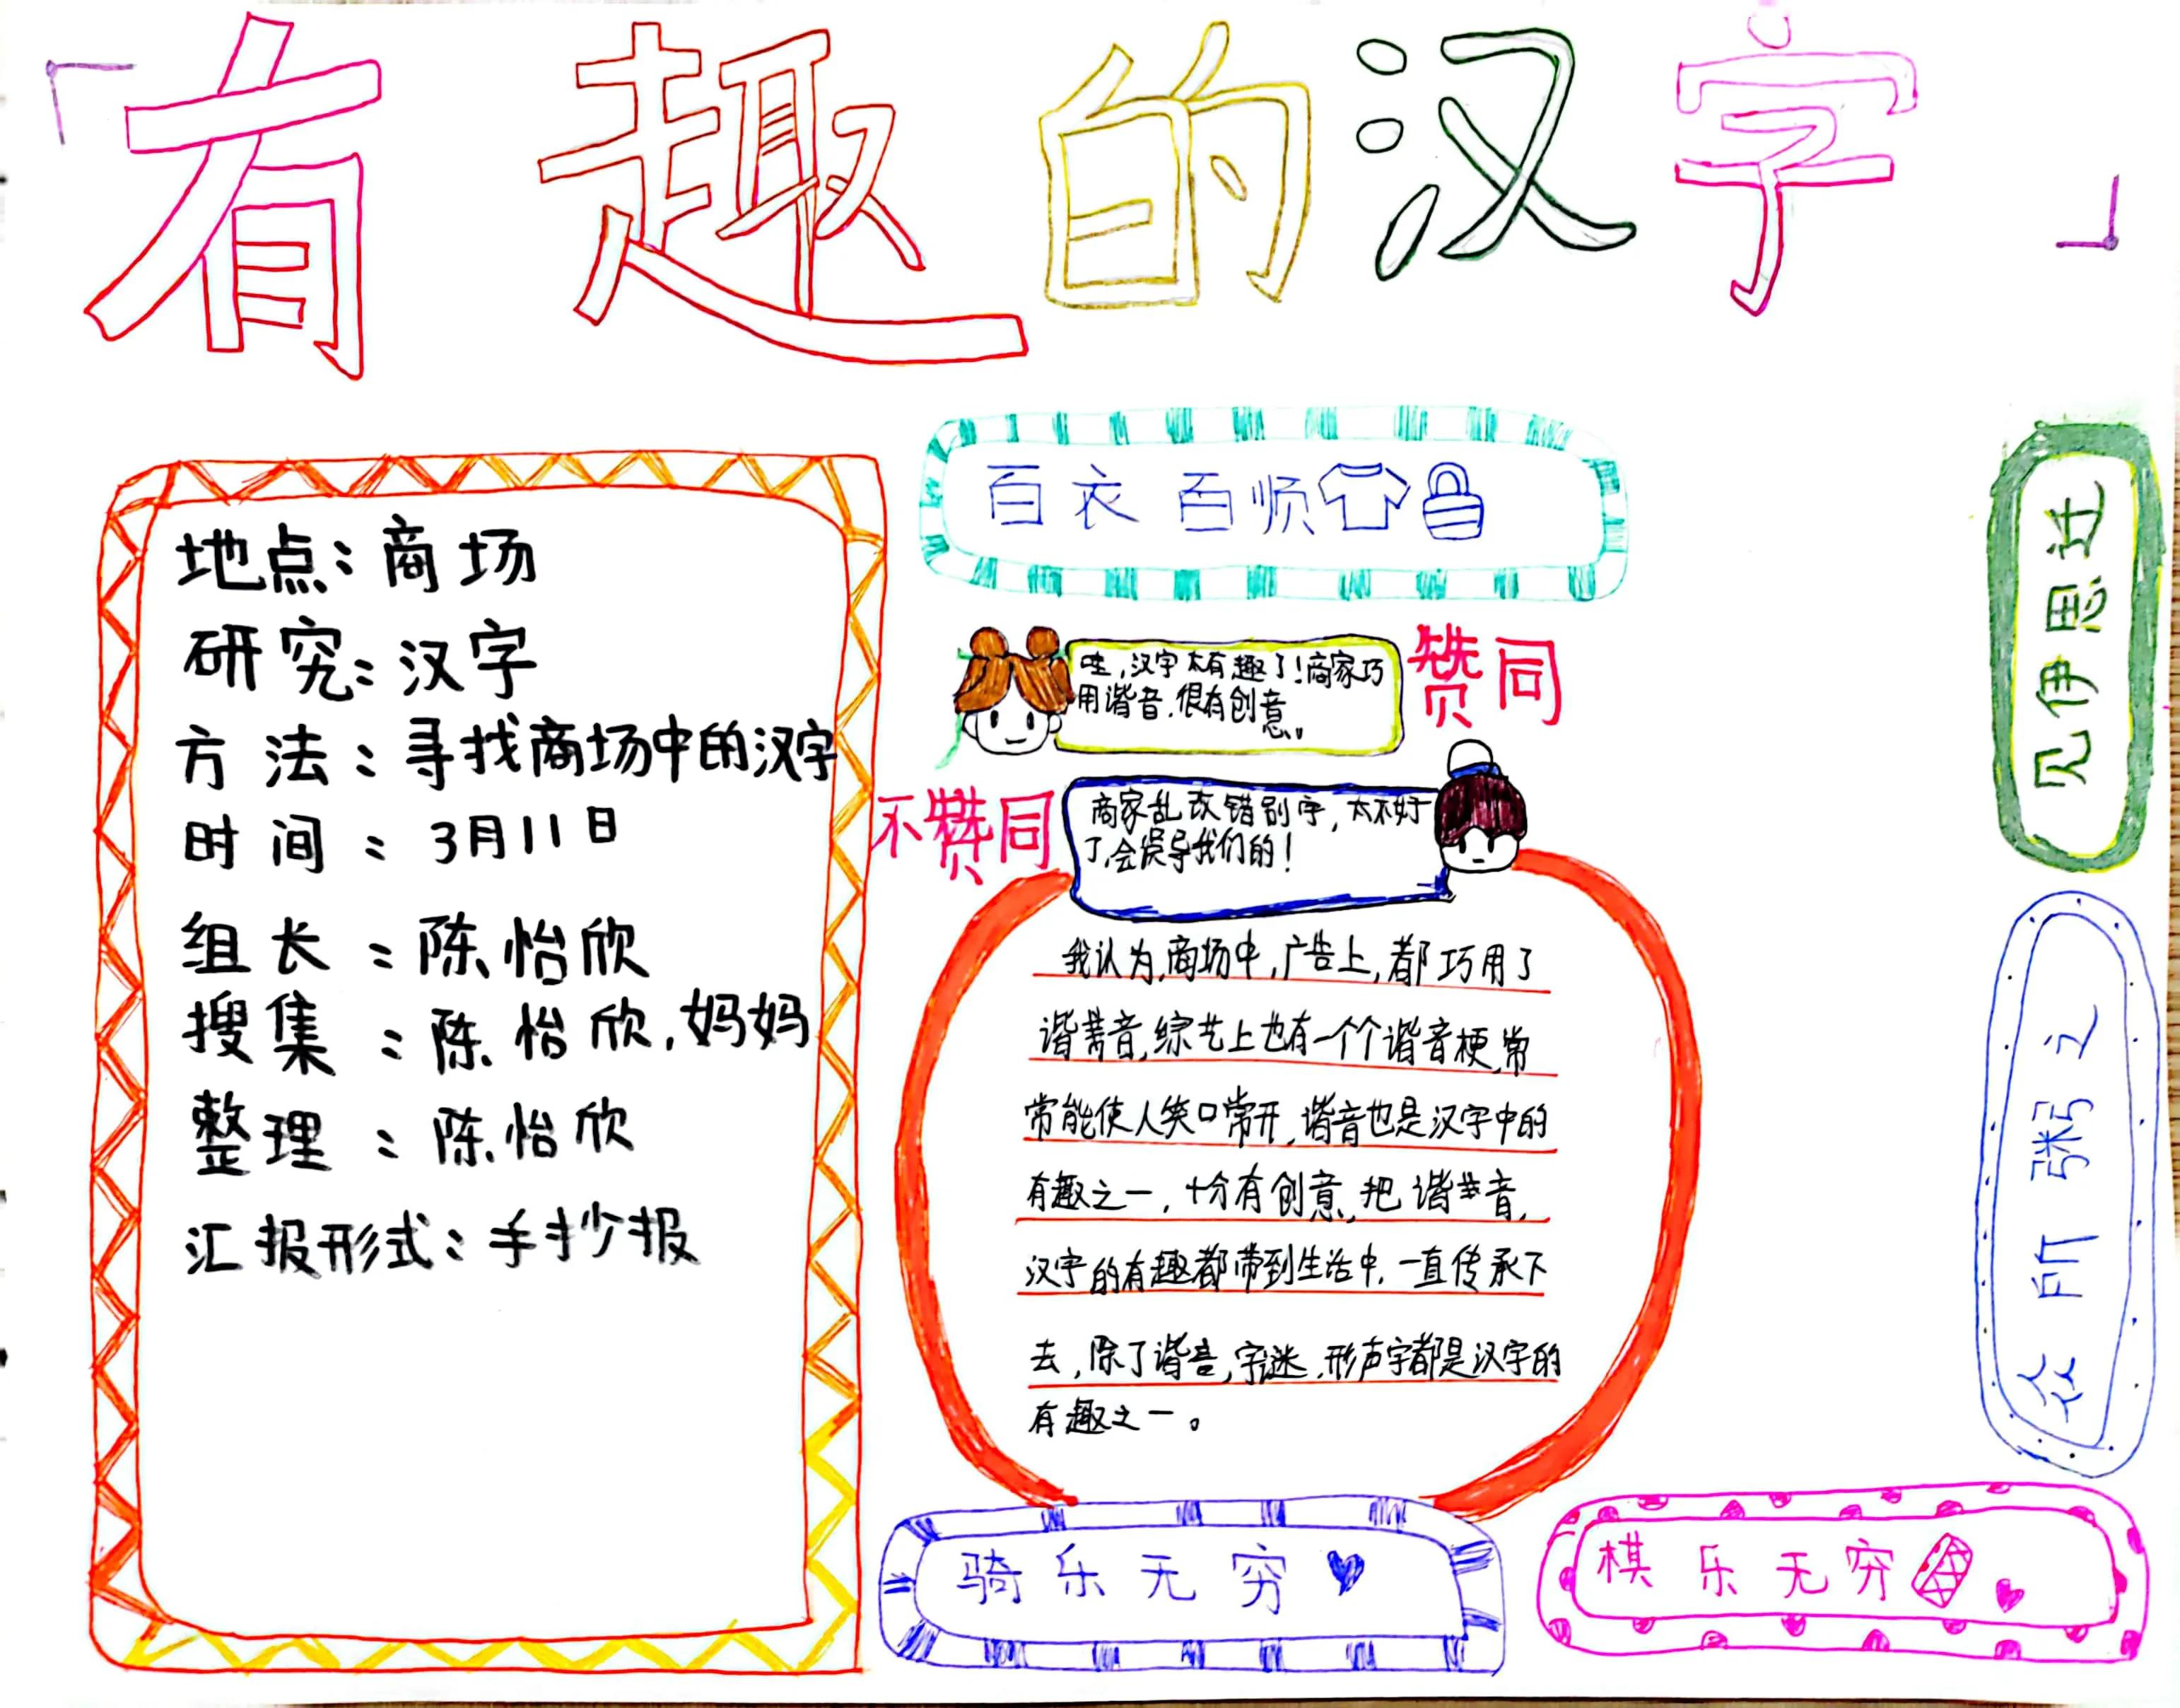 「有趣的汉字」
地点：商场
研究：汉字
方法：寻找商场中的汉字
时间：3月11日
组长：陈怡欣
搜集：陈怡欣，妈妈
整理：陈怡欣
汇报形式：手抄报
百衣百顺
哇，汉字太有趣了！商家巧
用谐音，很有创意。
赞同
不赞同
商家乱改错别字，太不好
了，会误导我们的！
我认为，商场中，广告上，都巧用了
谐音，综艺上也有一个个谐音梗，常
常能使人笑口常开，谐音也是汉字中的
有趣之一，十分有创意，把谐音，
汉字的有趣都带到生活中，一直传承下
去，除了谐音，字谜，形声字都是汉字的
有趣之一。
见伊思迁
众所粥之
骑乐无穷
棋乐无穷